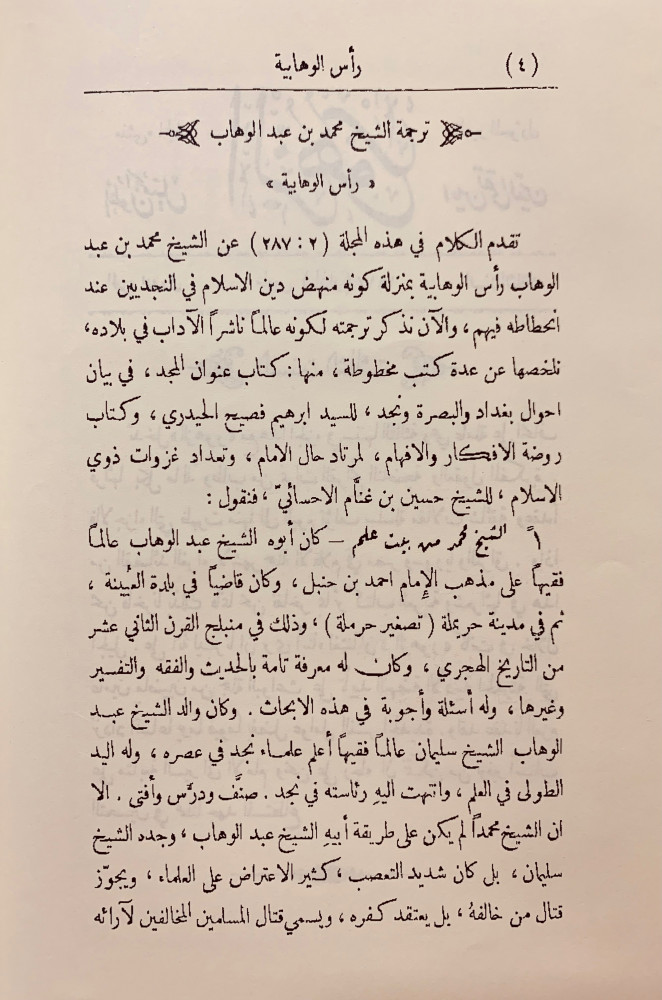 (٤) رأس الوهابية
ترجمة الشيخ محمد بن عبد الوهاب
« رأس الوهابية »
تقدم الكلام في هذه المجلة (٢ : ٢٨٧) عن الشيخ محمد بن عبد
الوهاب رأس الوهابية بمنزلة كونه منهض دين الاسلام في النجديين عند
انحطاطه فيهم ، والآن نذكر ترجمته لكونه عالماً ناشراً الآداب في بلاده،
نلخصها عن عدة كتب مخطوطة ، منها : كتاب عنوان المجد ، في بيان
احوال بغداد والبصرة ونجد ، للسيد ابرهيم فصيح الحيدري ، وكتاب
روضة الافكار والافهام ، لمرتاد حال الامام ، وتعداد غزوات ذوي
الاسلام ، للشيخ حسين بن غنَّام الاحسائيّ ، فنقول :
١ً الشيخ محمد من بيت علم – كان أبوه الشيخ عبد الوهاب عالماً
فقيهاً على مذهب الإِمام احمد بن حنبل ، وكان قاضياً في بلدة العُيينة ،
ثم في مدينة حريملة ( تصغير حرملة ) ، وذلك في منبلج القرن الثاني عشر
من التاريخ الهجري ، وكان له معرفة تامة بالحديث والفقه والتفسير
وغيرها ، وله أسئلة وأجوبة في هذه الابحاث . وكان والد الشيخ عبد
الوهاب الشيخ سليمان عالماً فقيهاً أعلم علماء نجد في عصره ، وله اليد
الطولى في العلم ، وانتهت اليهِ رئاسته في نجد . صنَّف ودرَّس وأفتى . الا
ان الشيخ محمداً لم يكن على طريقة أبيهِ الشيخ عبد الوهاب ، وجده الشيخ
سليمان ، بل كان شديد التعصب ، كثير الاعتراض على العلماء ، ويجوّز
قتال من خالفهُ ، بل يعتقد كفره ، ويسمي قتال المسلمين المخالفين لآرائه